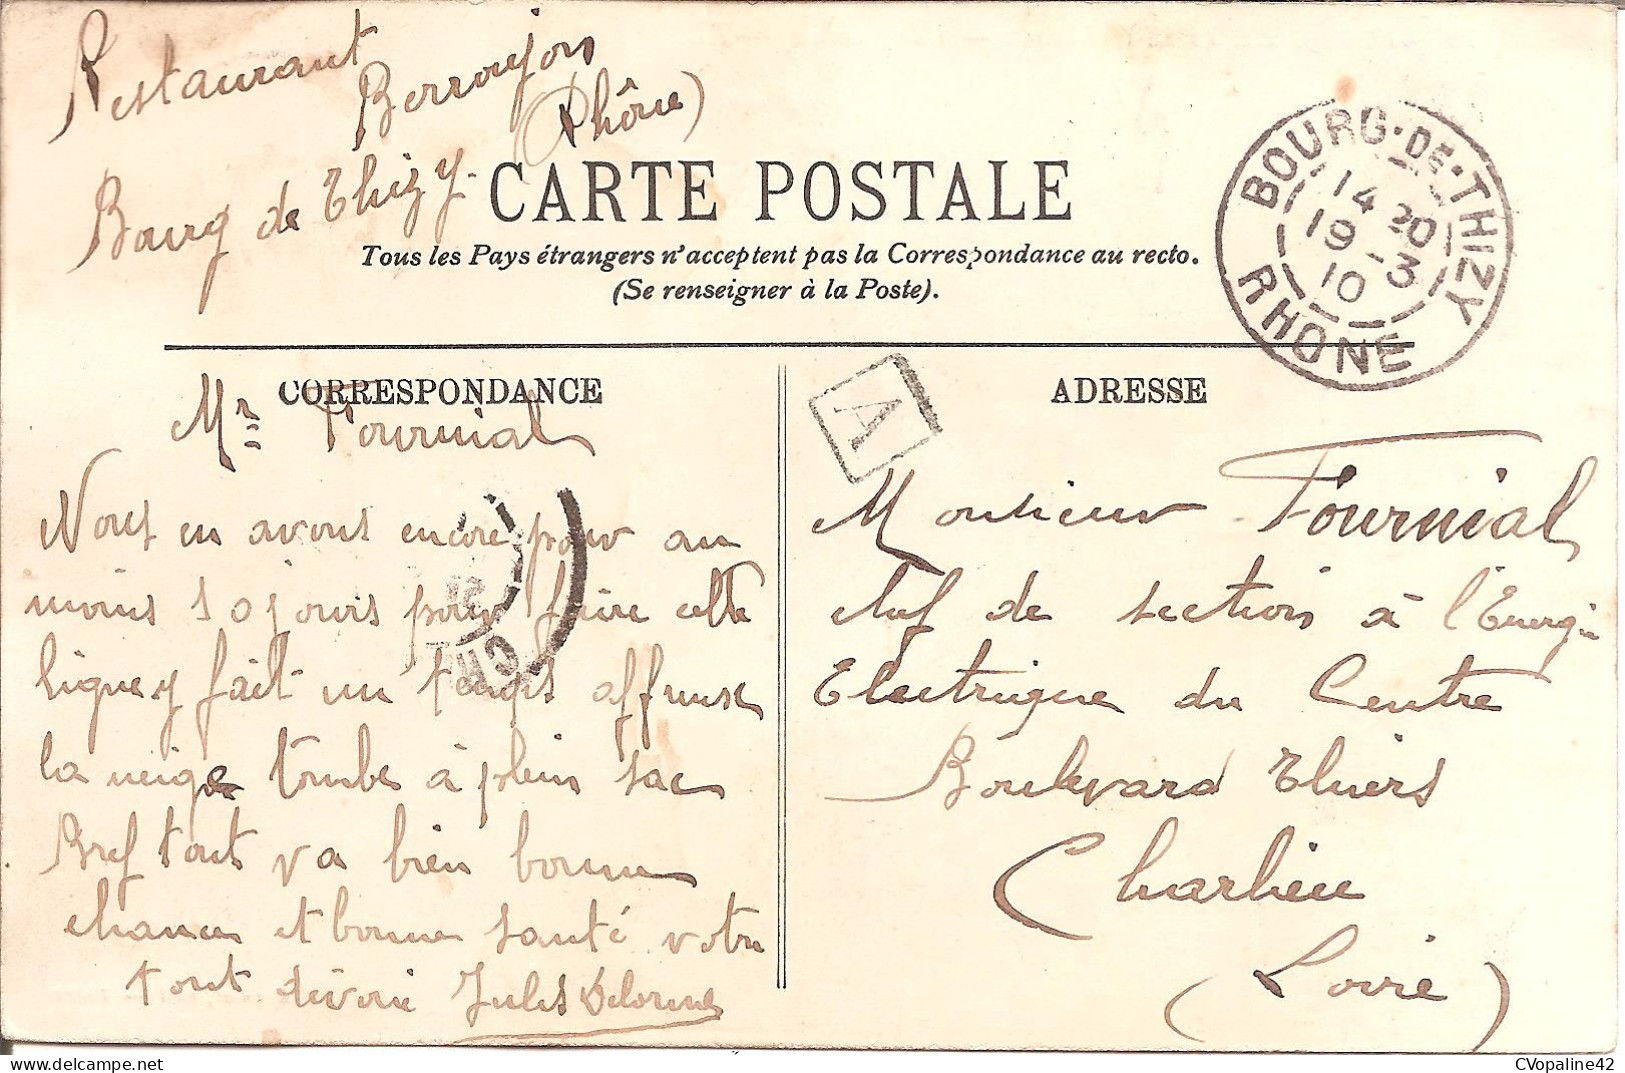 Restaurant
Berroujon
Bourg de Thizy (Rhône)
CARTE POSTALE
Tous les Pays étrangers n'acceptent pas la Correspondance au recto.
(Se renseigner à la Poste).
BOURG-DE-THIZY
14 20
19 - 3
10
RHONE
CORRESPONDANCE
Mr Fournial
Nous en avons encore pour au
moins 10 jours pour faire cette
ligne y fait un temps affreuse
la neige tombe à plein sac
Bref tout va bien bonne
chance et bonne santé votre
tout dévoué Jules Delorme
A
ADRESSE
Monsieur Fournial
chef de section à l'Energie
Electrique du Centre
Boulevard Thiers
Charlieu
(Loire)
CVopaline42